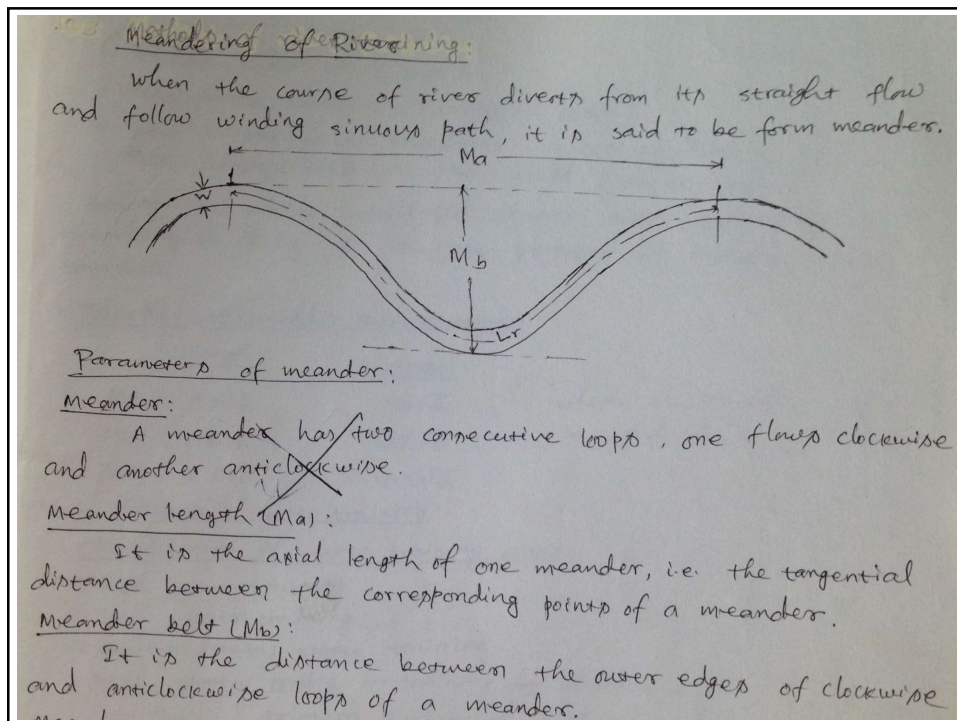 Meandering of River
When the course of river diverts from its straight flow
and follow winding sinuous path, it is said to be form meander.
Ma
W
Mb
Lr
Parameters of meander:
Meander:
A meander has two consecutive loops, one flows clockwise
and another anticlockwise.
Meander length (Ma):
It is the axial length of one meander, i.e. the tangential
distance between the corresponding points of a meander.
Meander belt (Mb):
It is the distance between the outer edges of clockwise
and anticlockwise loops of a meander.